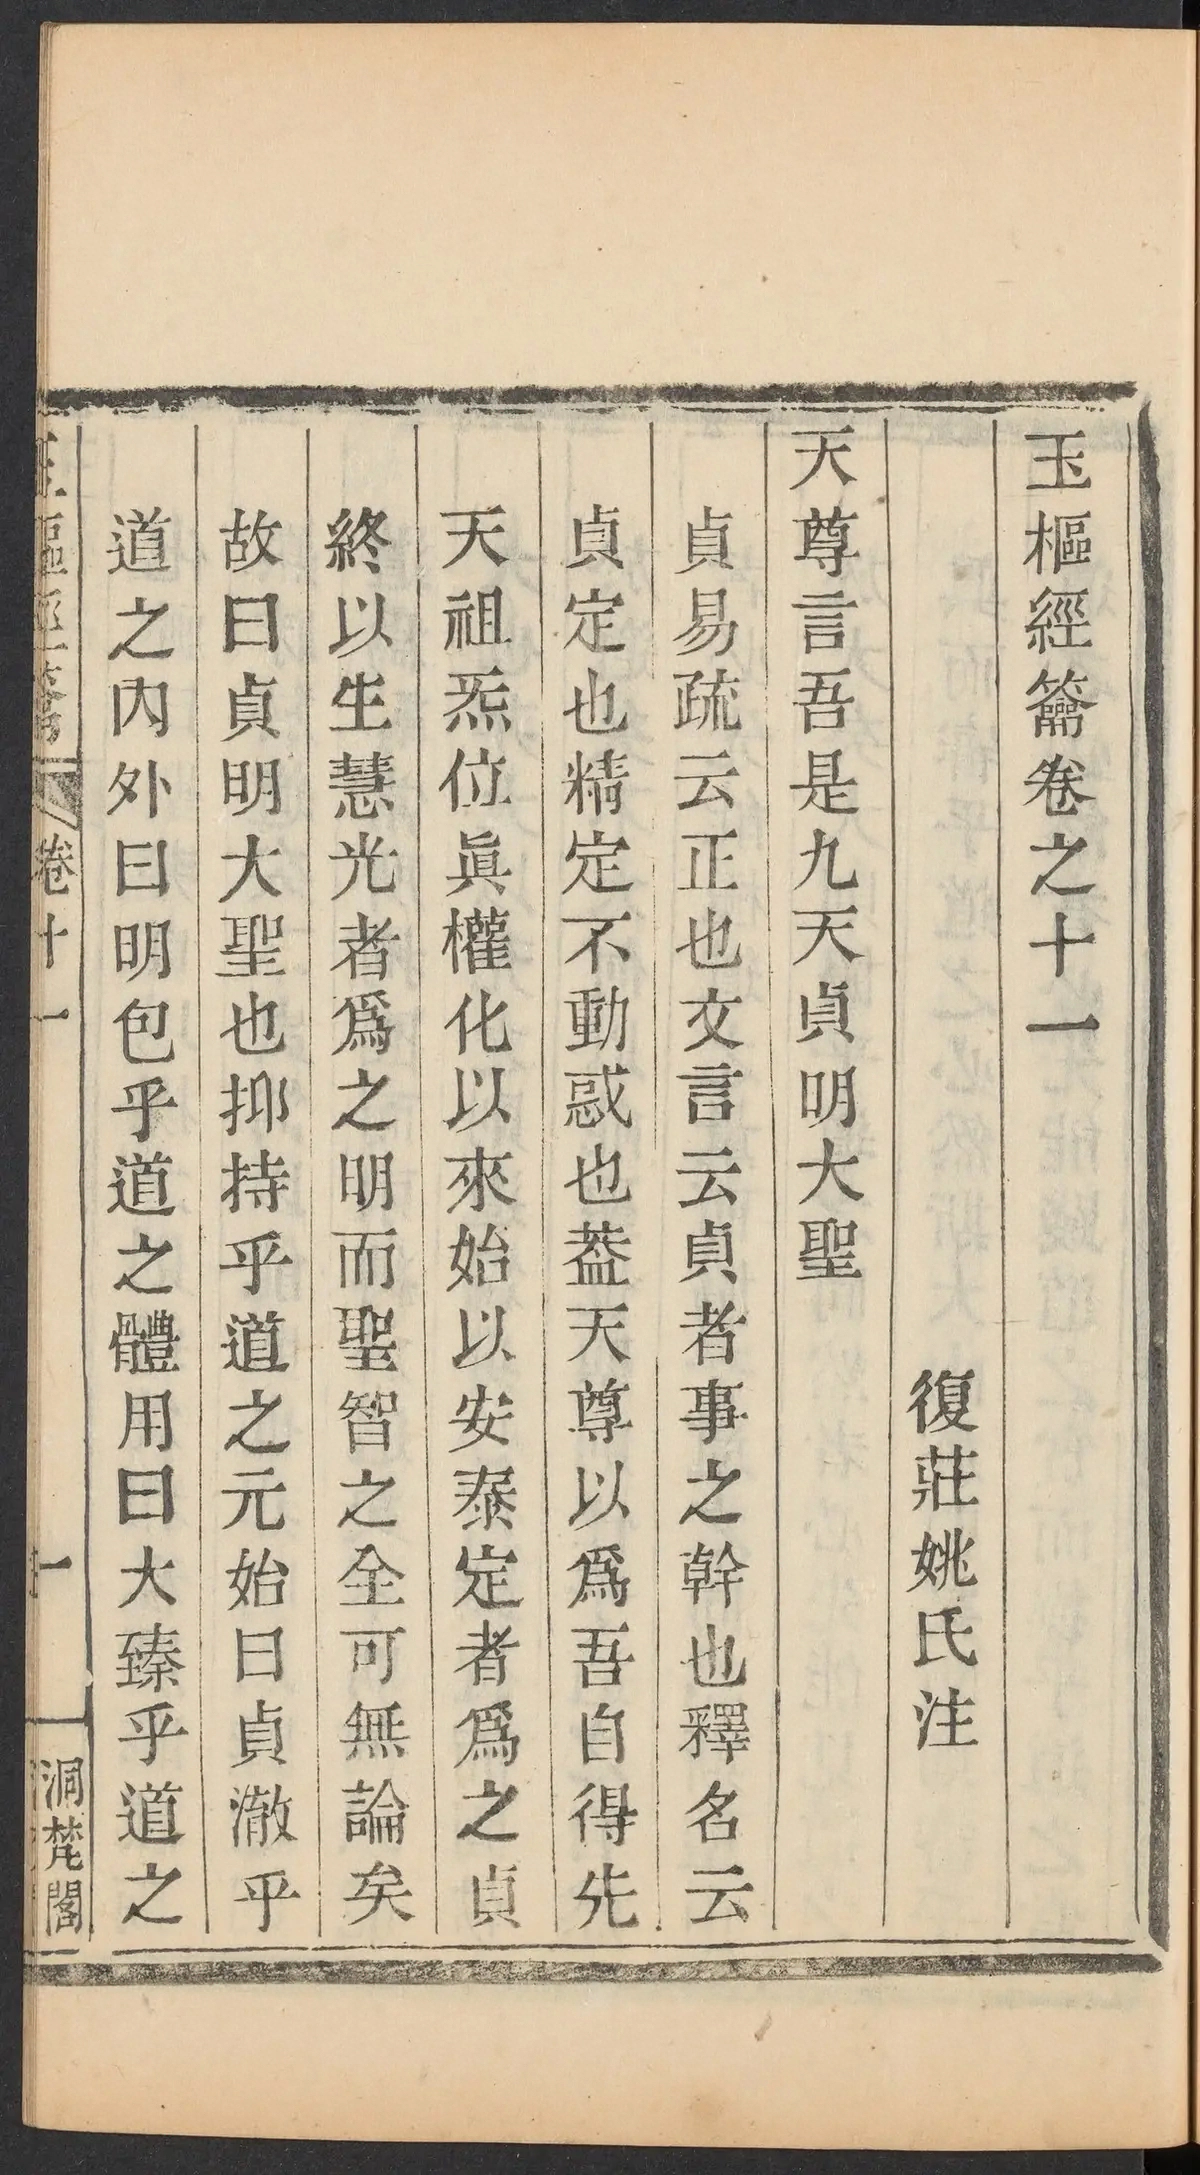 玉樞經籥卷之十一
復莊姚氏注
天尊言吾是九天貞明大聖
貞易疏云正也文言云貞者事之幹也釋名云
貞定也精定不動惑也葢天尊以爲吾自得先
天祖炁位眞權化以來始以安泰定者爲之貞
終以生慧光者爲之明而聖智之全可無論矣
故曰貞明大聖也抑持乎道之元始曰貞澈乎
道之內外曰明包乎道之體用曰大臻乎道之
玉樞經籥
卷十一
一
洞梵閣